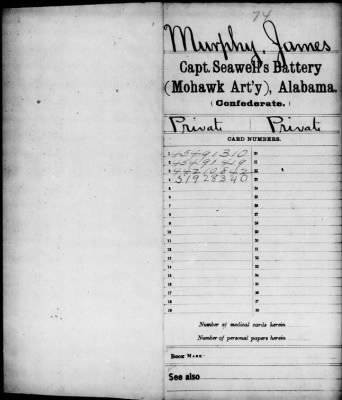 74
Murphy, James
Capt. Seawell's Battery
(Mohawk Art'y), Alabama.
(Confederate.)
Private Private
CARD NUMBERS.
1 45491310 20
2 45491419 21
3 44210842 22
4 51928340 23
5 24
6 25
7 26
8 27
9 28
10 29
11 30
12 31
13 32
14 33
15 34
16 35
17 36
18 37
19 38
Number of medical cards herein
Number of personal papers herein
BOOK MARK:
See also